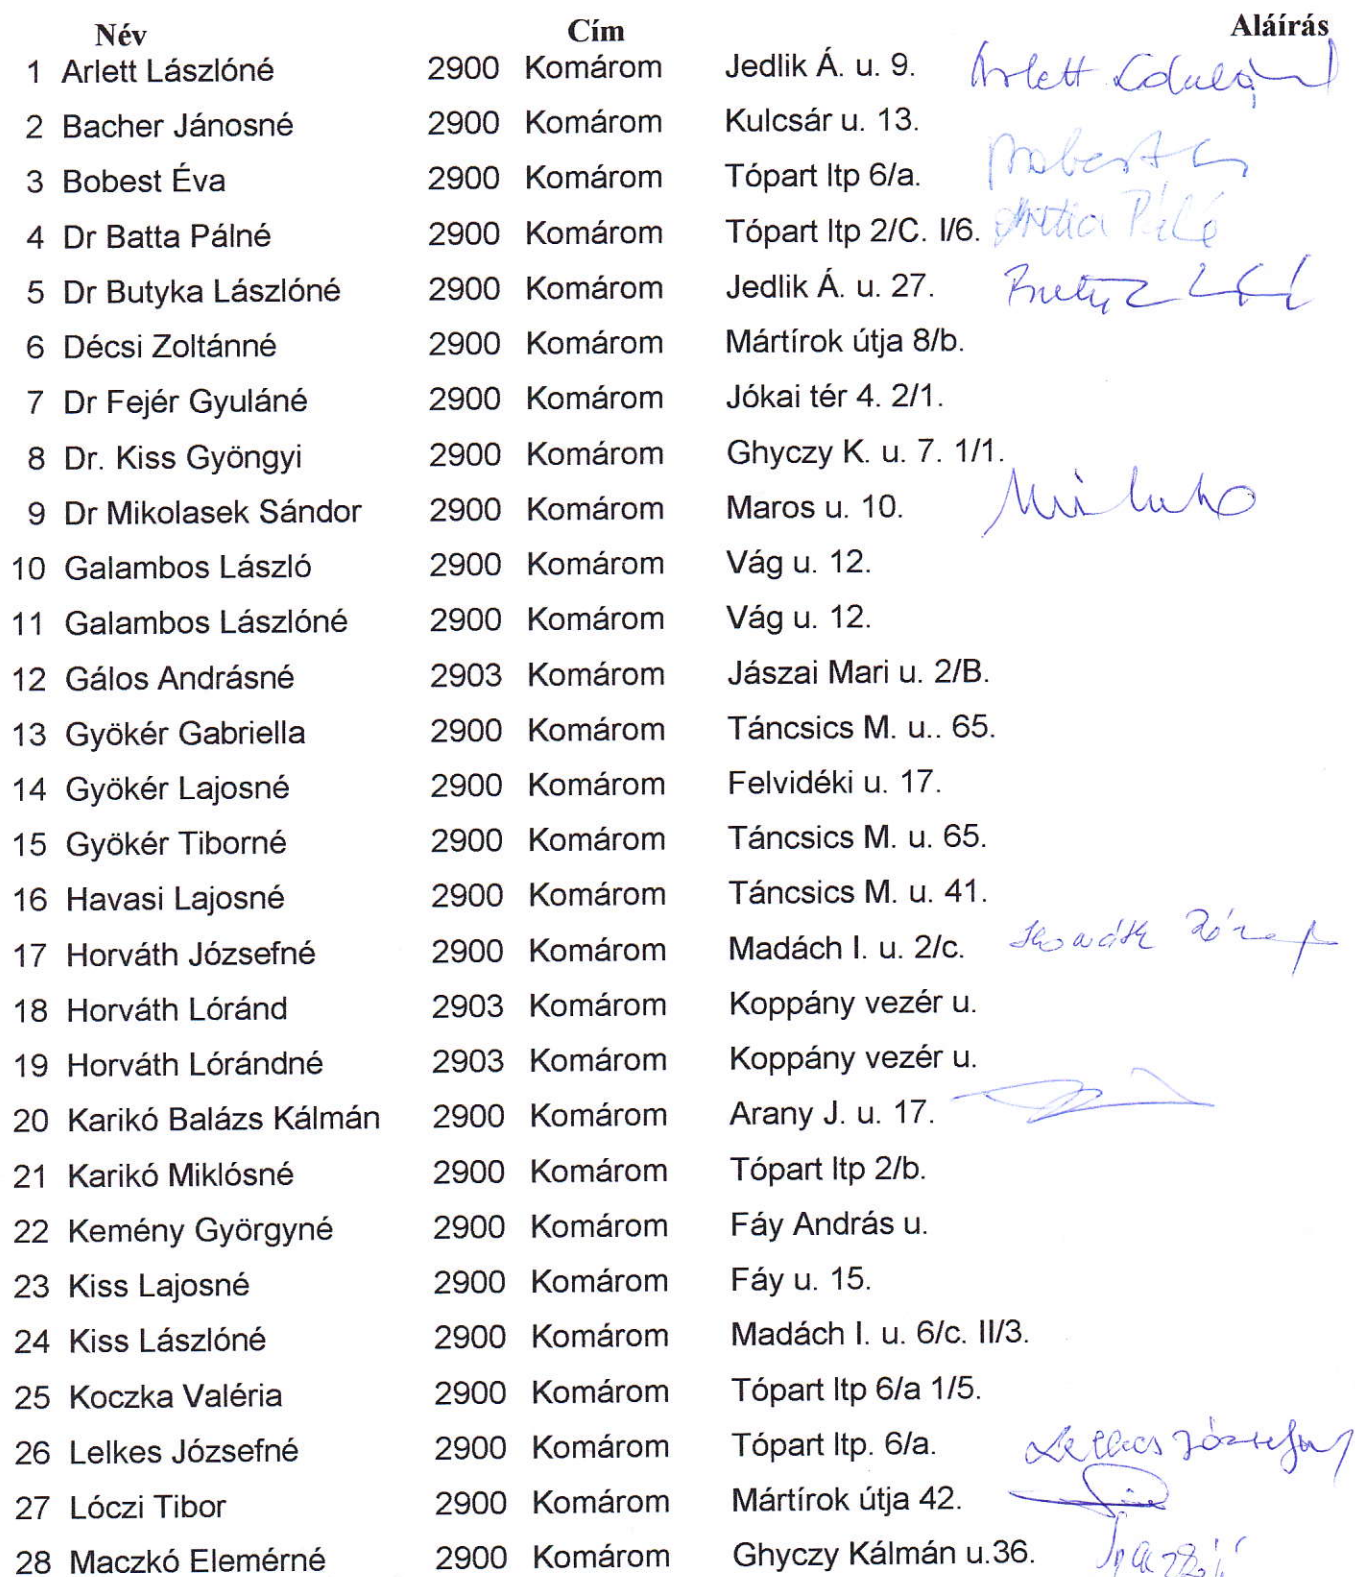 Név Cím Aláírás
1 Arlett Lászlóné 2900 Komárom Jedlik Á. u. 9. Arlett Lászlóné
2 Bacher Jánosné 2900 Komárom Kulcsár u. 13.
3 Bobest Éva 2900 Komárom Tópart ltp 6/a. Bobest Éva
4 Dr Batta Pálné 2900 Komárom Tópart ltp 2/C. I/6. Batta Pálné
5 Dr Butyka Lászlóné 2900 Komárom Jedlik Á. u. 27.
6 Décsi Zoltánné 2900 Komárom Mártírok útja 8/b.
7 Dr Fejér Gyuláné 2900 Komárom Jókai tér 4. 2/1.
8 Dr. Kiss Gyöngyi 2900 Komárom Ghyczy K. u. 7. 1/1.
9 Dr Mikolasek Sándor 2900 Komárom Maros u. 10.
10 Galambos László 2900 Komárom Vág u. 12.
11 Galambos Lászlóné 2900 Komárom Vág u. 12.
12 Gálos Andrásné 2903 Komárom Jászai Mari u. 2/B.
13 Gyökér Gabriella 2900 Komárom Táncsics M. u.. 65.
14 Gyökér Lajosné 2900 Komárom Felvidéki u. 17.
15 Gyökér Tiborné 2900 Komárom Táncsics M. u. 65.
16 Havasi Lajosné 2900 Komárom Táncsics M. u. 41.
17 Horváth Józsefné 2900 Komárom Madách I. u. 2/c. Horváth Józsefné
18 Horváth Lóránd 2903 Komárom Koppány vezér u.
19 Horváth Lórándné 2903 Komárom Koppány vezér u.
20 Karikó Balázs Kálmán 2900 Komárom Arany J. u. 17.
21 Karikó Miklósné 2900 Komárom Tópart ltp 2/b.
22 Kemény Györgyné 2900 Komárom Fáy András u.
23 Kiss Lajosné 2900 Komárom Fáy u. 15.
24 Kiss Lászlóné 2900 Komárom Madách I. u. 6/c. II/3.
25 Koczka Valéria 2900 Komárom Tópart ltp 6/a 1/5.
26 Lelkes Józsefné 2900 Komárom Tópart ltp. 6/a. Lelkes Józsefné
27 Lóczi Tibor 2900 Komárom Mártírok útja 42.
28 Maczkó Elemérné 2900 Komárom Ghyczy Kálmán u.36.